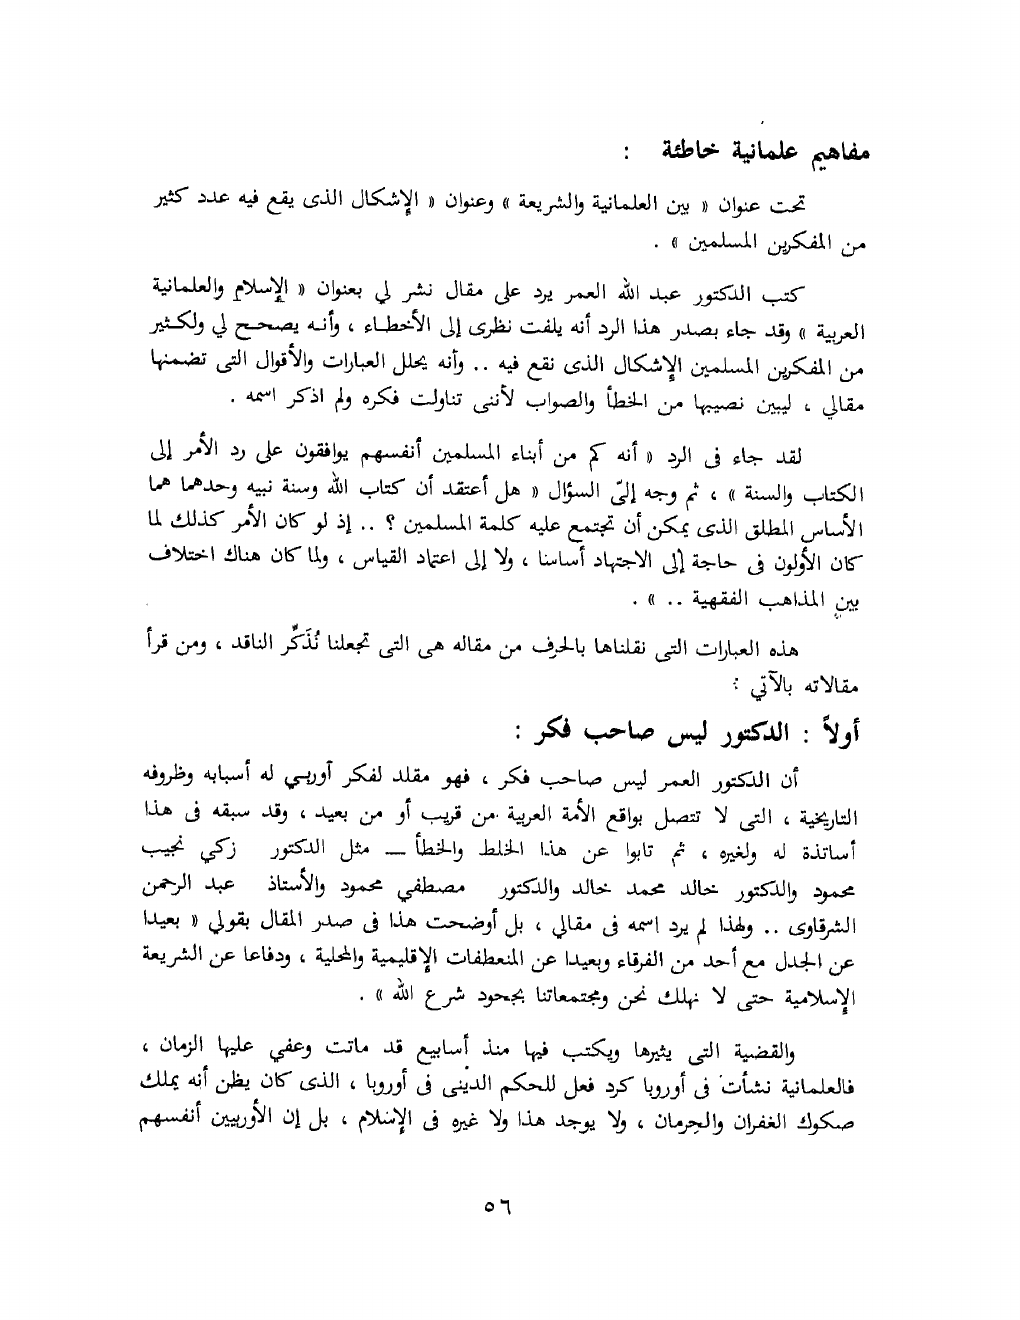 مفاهيم علمانية خاطئة :
تحت عنوان « بين العلمانية والشريعة » وعنوان « الإشكال الذى يقع فيه عدد كثير
من المفكرين المسلمين » .
كتب الدكتور عبد الله العمر يرد على مقال نشر لي بعنوان « الإسلام والعلمانية
العربية » وقد جاء بصدر هذا الرد أنه يلفت نظرى إلى الأخطاء ، وأنه يصحح لي ولكثير
من المفكرين المسلمين الإشكال الذى نقع فيه .. وأنه يحلل العبارات والأقوال التى تضمنها
مقالي ، ليبين نصيبها من الخطأ والصواب لأننى تناولت فكره ولم اذكر اسمه .
لقد جاء فى الرد « أنه كم من أبناء المسلمين أنفسهم يوافقون على رد الأمر إلى
الكتاب والسنة » ، ثم وجه إليّ السؤال « هل أعتقد أن كتاب الله وسنة نبيه وحدهما هما
الأساس المطلق الذى يمكن أن تجتمع عليه كلمة المسلمين ؟ .. إذ لو كان الأمر كذلك لما
كان الأولون فى حاجة إلى الاجتهاد أساسنا ، ولا إلى اعتماد القياس ، ولما كان هناك اختلاف
بين المذاهب الفقهية .. » .
هذه العبارات التى نقلناها بالحرف من مقاله هى التى تجعلنا نُذَكِّر الناقد ، ومن قرأ
مقالاته بالآتي :
أولاً : الدكتور ليس صاحب فكر :
أن الدكتور العمر ليس صاحب فكر ، فهو مقلد لفكر آوربي له أسبابه وظروفه
التاريخية ، التى لا تتصل بواقع الأمة العربية من قريب أو من بعيد ، وقد سبقه فى هذا
أساتذة له ولغيره ، ثم تابوا عن هذا الخلط والخطأ ــ مثل الدكتور زكي نجيب
محمود والدكتور خالد محمد خالد والدكتور مصطفي محمود والأستاذ عبد الرحمن
الشرقاوى .. ولهذا لم يرد اسمه فى مقالي ، بل أوضحت هذا فى صدر المقال بقولي « بعيدا
عن الجدل مع أحد من الفرقاء وبعيدا عن المنعطفات الإقليمية والمحلية ، ودفاعا عن الشريعة
الإسلامية حتى لا نهلك نحن ومجتمعاتنا بجحود شرع الله » .
والقضية التى يثيرها ويكتب فيها منذ أسابيع قد ماتت وعفي عليها الزمان ،
فالعلمانية نشأت فى أوروبا كرد فعل للحكم الدينى فى أوروبا ، الذى كان يظن أنه يملك
صكوك الغفران والحرمان ، ولا يوجد هذا ولا غيره فى الإسلام ، بل إن الأوربيين أنفسهم
٥٦